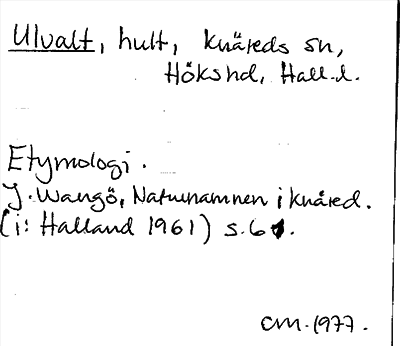 Ulvalt, hult, Knäreds sn,
Höks hd, Hall. l.
Etymologi.
J. Wangö, Naturnamnen i Knäred.
(i: Halland 1961) s. 61.
CM. 1977.